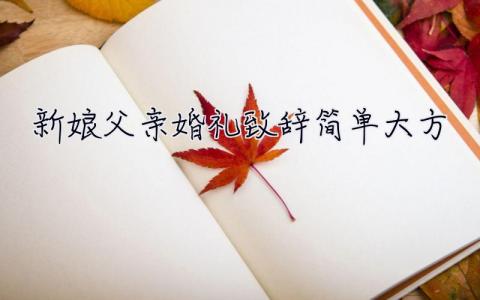 新娘父亲婚礼致辞简单大方